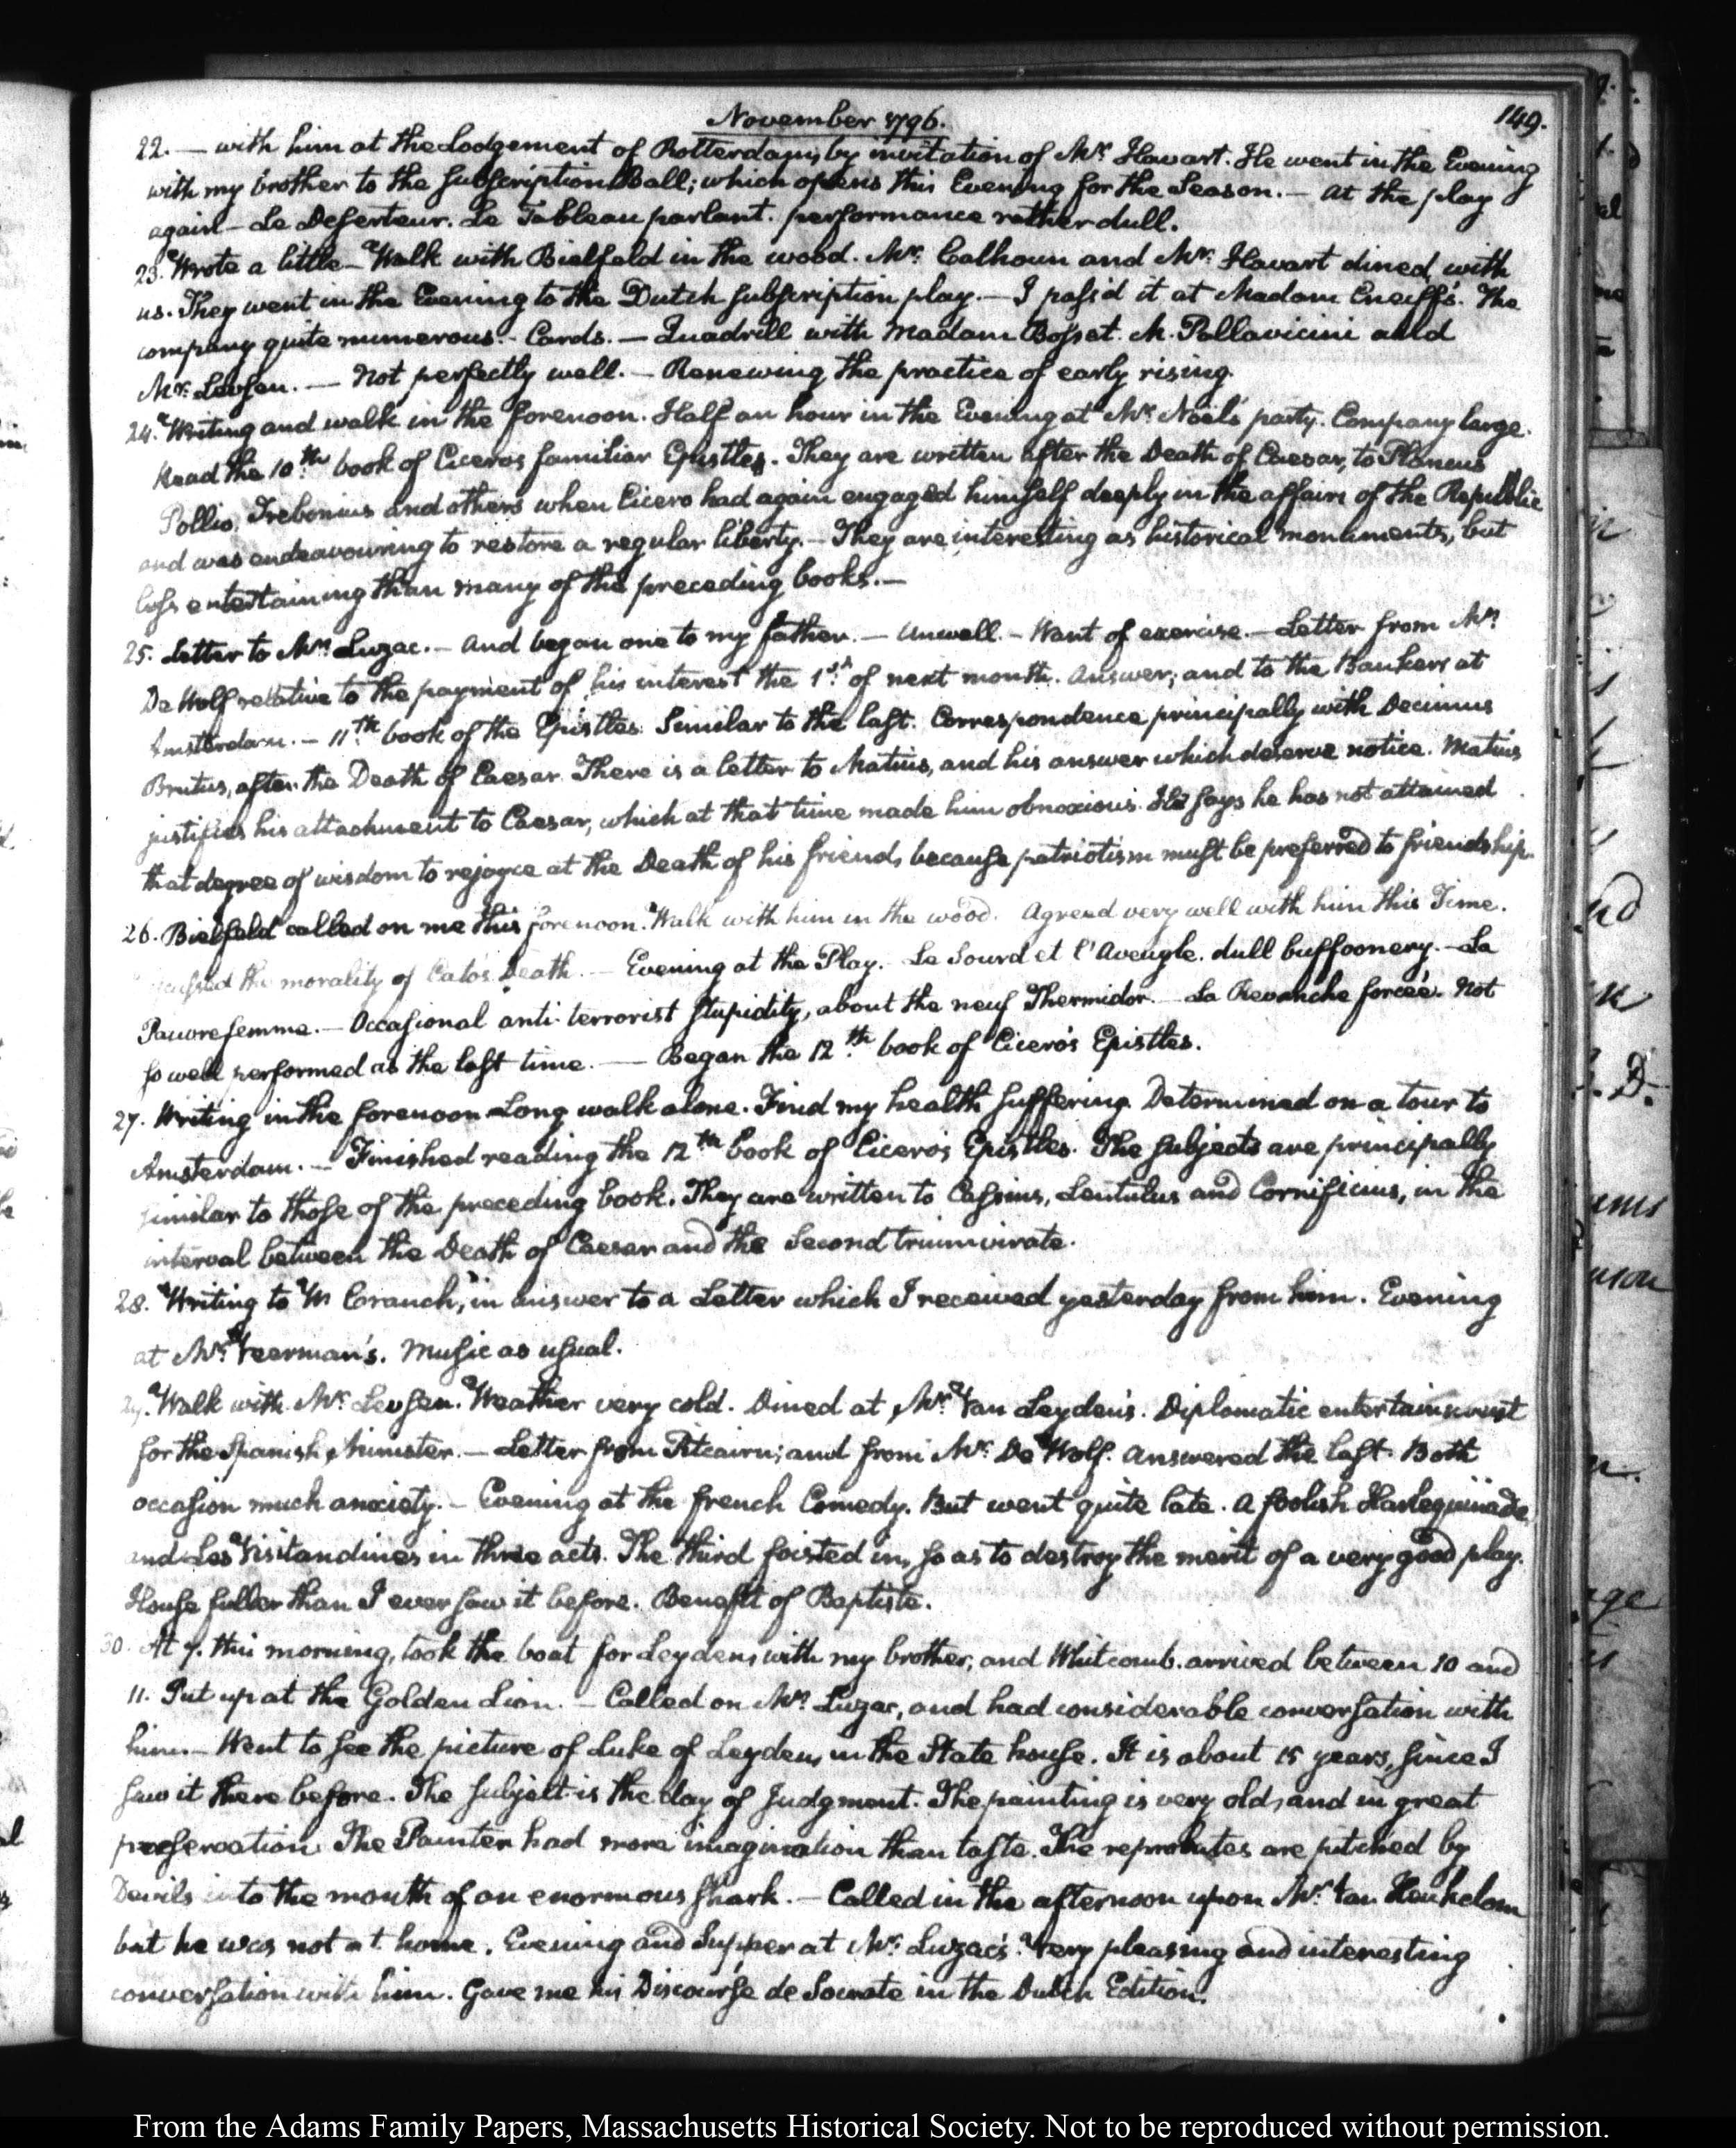 November 1796.
149.
22. — with him at the Lodgement of Rotterdam, by invitation of Mr. Havart. He went in the Evening
with my brother to the Subscription Ball; which opens this Evening for the Season. — At the play
again — Le Deserteur. Le Tableau parlant. performance rather dull.
23. Wrote a little — Walk with Bielfeld in the wood. Mr. Calhoun and Mr. Havart dined with
us. They went in the Evening to the Dutch subscription play. — I pass'd it at Madam Cneiff's. The
company quite numerous. — Cards. — Quadrill with Madam Bosset. M. Pallavicini and
Mr. Levsen. — Not perfectly well. — Renewing the practice of early rising.
24. Writing and walk in the forenoon. Half an hour in the Evening at Mr. Noel's party. Company large.
Read the 10th. book of Cicero's familiar Epistles. They are written after the Death of Caesar, to Plancus
Pollio, Trebonius and others when Cicero had again engaged himself deeply in the affairs of the Republic
and was endeavouring to restore a regular liberty. — They are interesting as historical monuments, but
less entertaining than many of the preceding books. —
25. Letter to Mr. Luzac. — And began one to my father. — Unwell. — Want of exercise. — Letter from Mr.
De Wolf relative to the payment of his interest the 1st. of next month. Answer; and to the Bankers at
Amsterdam. — 11th. book of the Epistles. Similar to the last. Correspondence principally with Decimus
Brutus, after the Death of Caesar. There is a letter to Matius, and his answer which deserve notice. Matius
justifies his attachment to Caesar, which at that time made him obnoxious. He says he has not attained
that degree of wisdom to rejoyce at the Death of his friend, because patriotism must be preferred to friendship.
26. Bielfeld called on me this forenoon. Walk with him in the wood. Agreed very well with him this Time.
the morality of Cato's Death. — Evening at the Play. — Le Sourd et l'Aveugle. dull buffoonery. — La
Pauvre femme. — Occasional anti-terrorist stupidity, about the neuf Thermidor. — La Revanche forcée. Not
so well performed as the last time. — Began the 12th. book of Cicero's Epistles.
27. Writing in the forenoon. Long walk alone. Find my health suffering. Determined on a tour to
Amsterdam. — Finished reading the 12th book of Cicero's Epistles. The subjects are principally
similar to those of the preceding book. They are written to Cassius, Lentulus and Cornificius, in the
interval between the Death of Caesar and the Second triumvirate.
28. Writing to W Cranch, in answer to a Letter which I received yesterday from him. Evening
at Mr. Veerman's. Music as usual.
29. Walk with Mr. Levsen. Weather very cold. Dined at Mr. Van Leyden's. Diplomatic entertainment
for the Spanish Minister. — Letter from Pitcairn; and from Mr. De Wolf. Answered the last. Both
occasion much anxiety. — Evening at the French Comedy. But went quite late. A foolish Harlequinade
and Les Visitandines in three acts. The third foisted in, so as to destroy the merit of a very good play.
House fuller than I ever saw it before. Benefit of Baptiste.
30. At 7. this morning, took the boat for Leyden, with my brother, and Whitcomb. arrived between 10 and
11. Put up at the Golden Lion. — Called on Mr. Luzac, and had considerable conversation with
him. — Went to see the picture of Luke of Leyden, in the State house. It is about 15 years, since I
saw it there before. The subject is the day of Judgment. The painting is very old, and in great
preservation. The Painter had more imagination than taste. The reprobates are pitched by
Devils into the mouth of an enormous shark. — Called in the afternoon upon Mr. Van Heukelom
but he was not at home. Evening and Supper at Mr. Luzac's. Very pleasing and interesting
conversation with him. Gave me his Discourse de Socrate in the Dutch Edition.
From the Adams Family Papers, Massachusetts Historical Society. Not to be reproduced without permission.